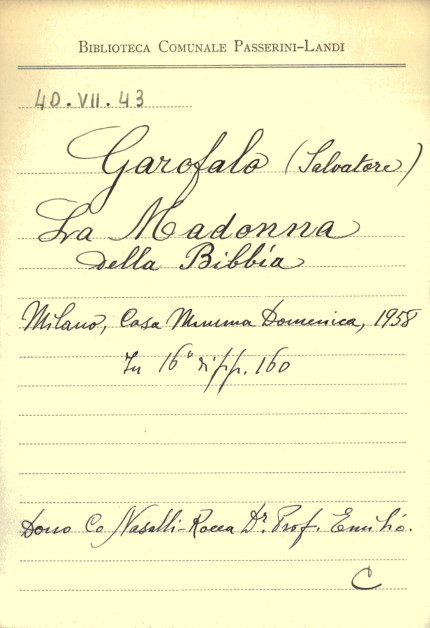 BIBLIOTECA COMUNALE PASSERINI-LANDI
40.VII.43
Garofalo (Salvatore)
La Madonna
della Bibbia
Milano, Casa Mamma Domenica, 1958
In 16° di pp. 160
Dono Co Nasalli-Rocca Dr. Prof. Emilio.
C